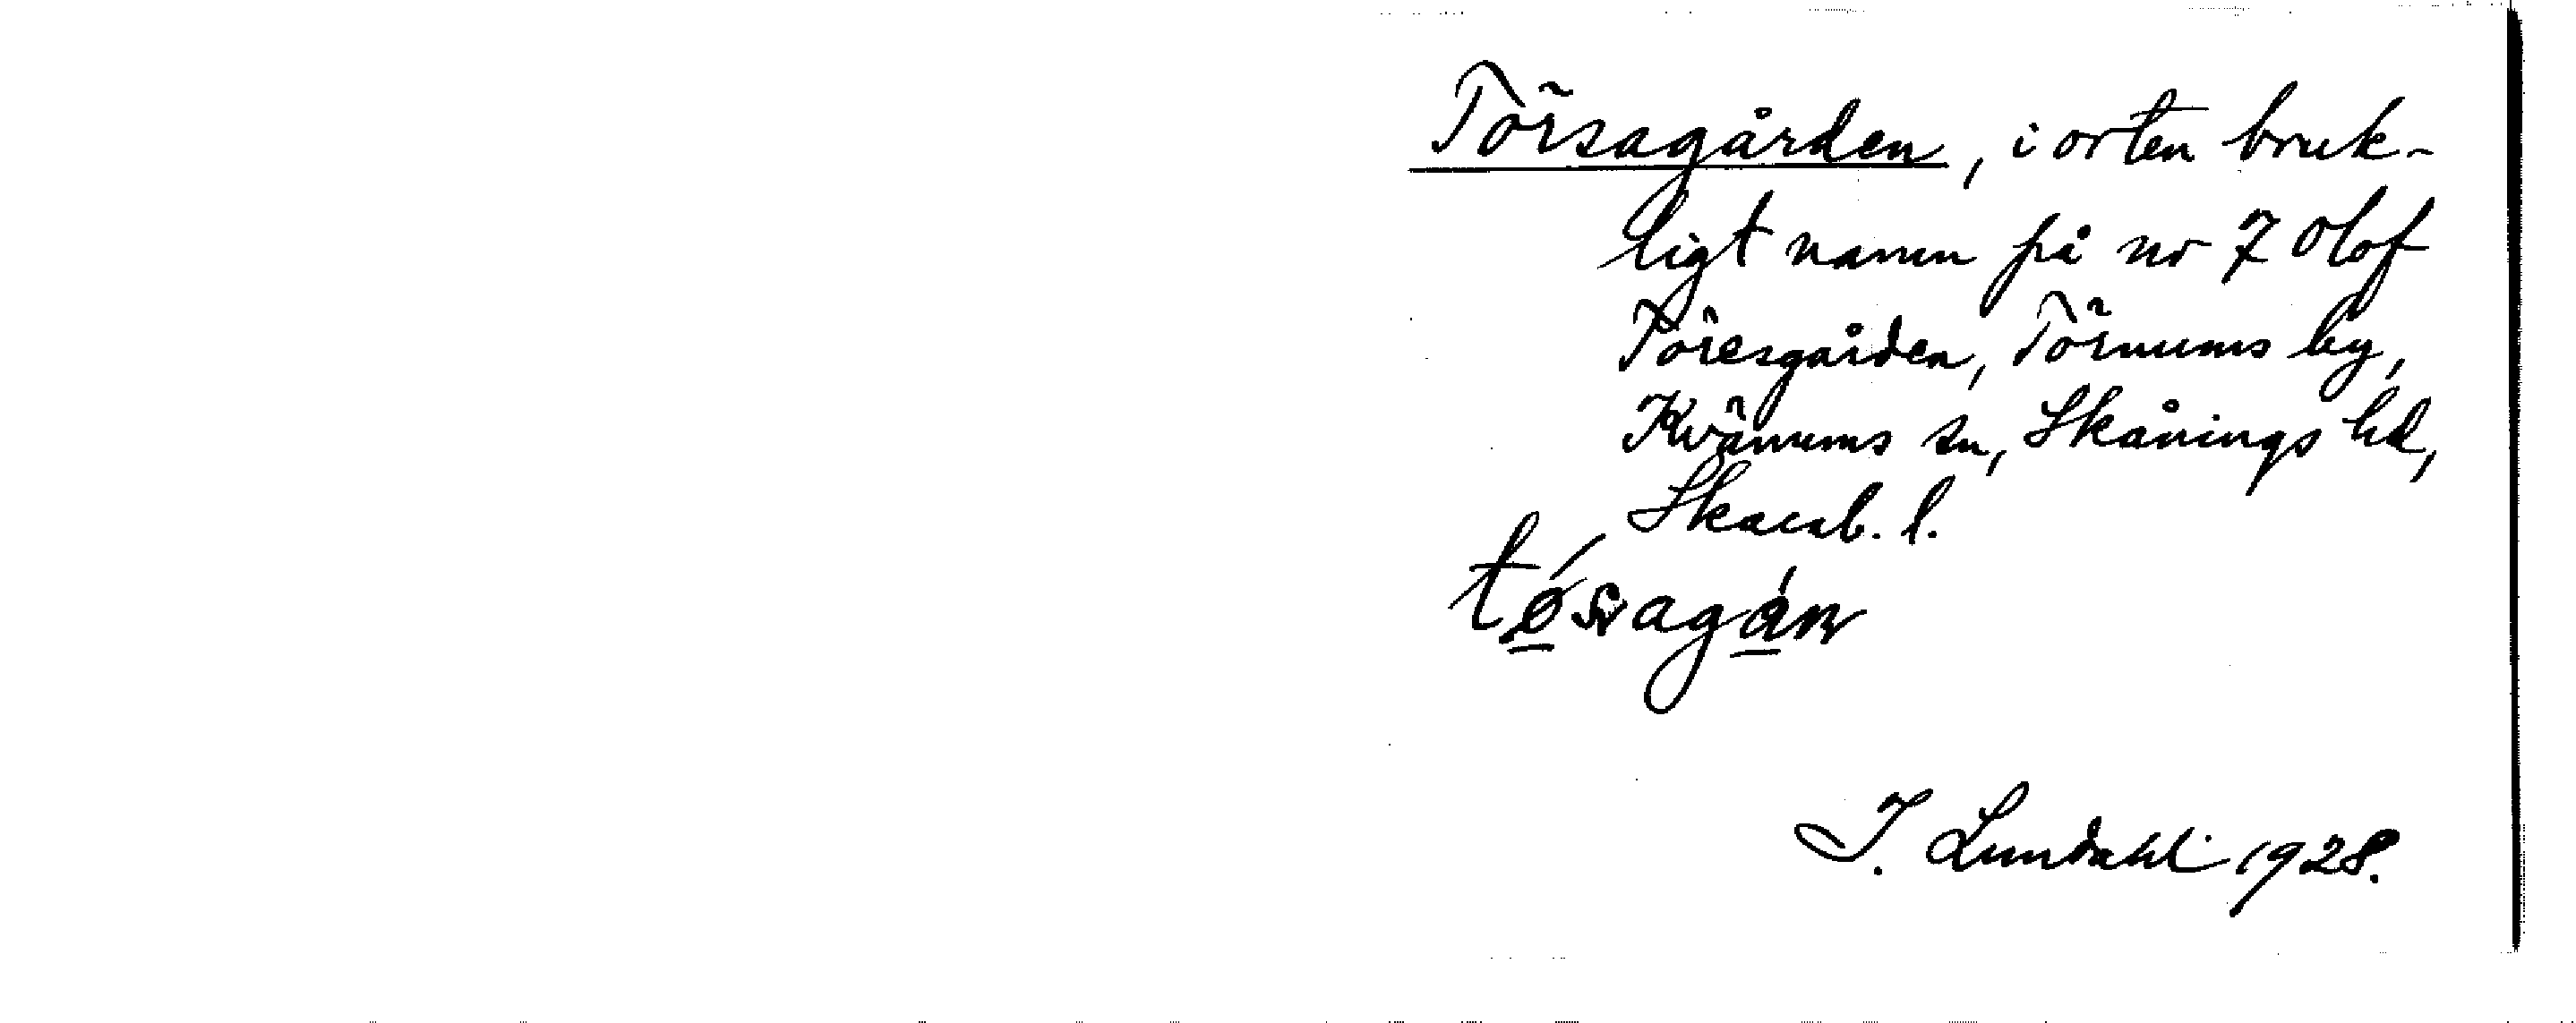 Törsagården, i orten bruk-
ligt namn på nr 7 Olof
Töresgården, Törnums by,
Kvänums sn, Skånings hd,
Skarab. l.
I. Lundahl 1928.